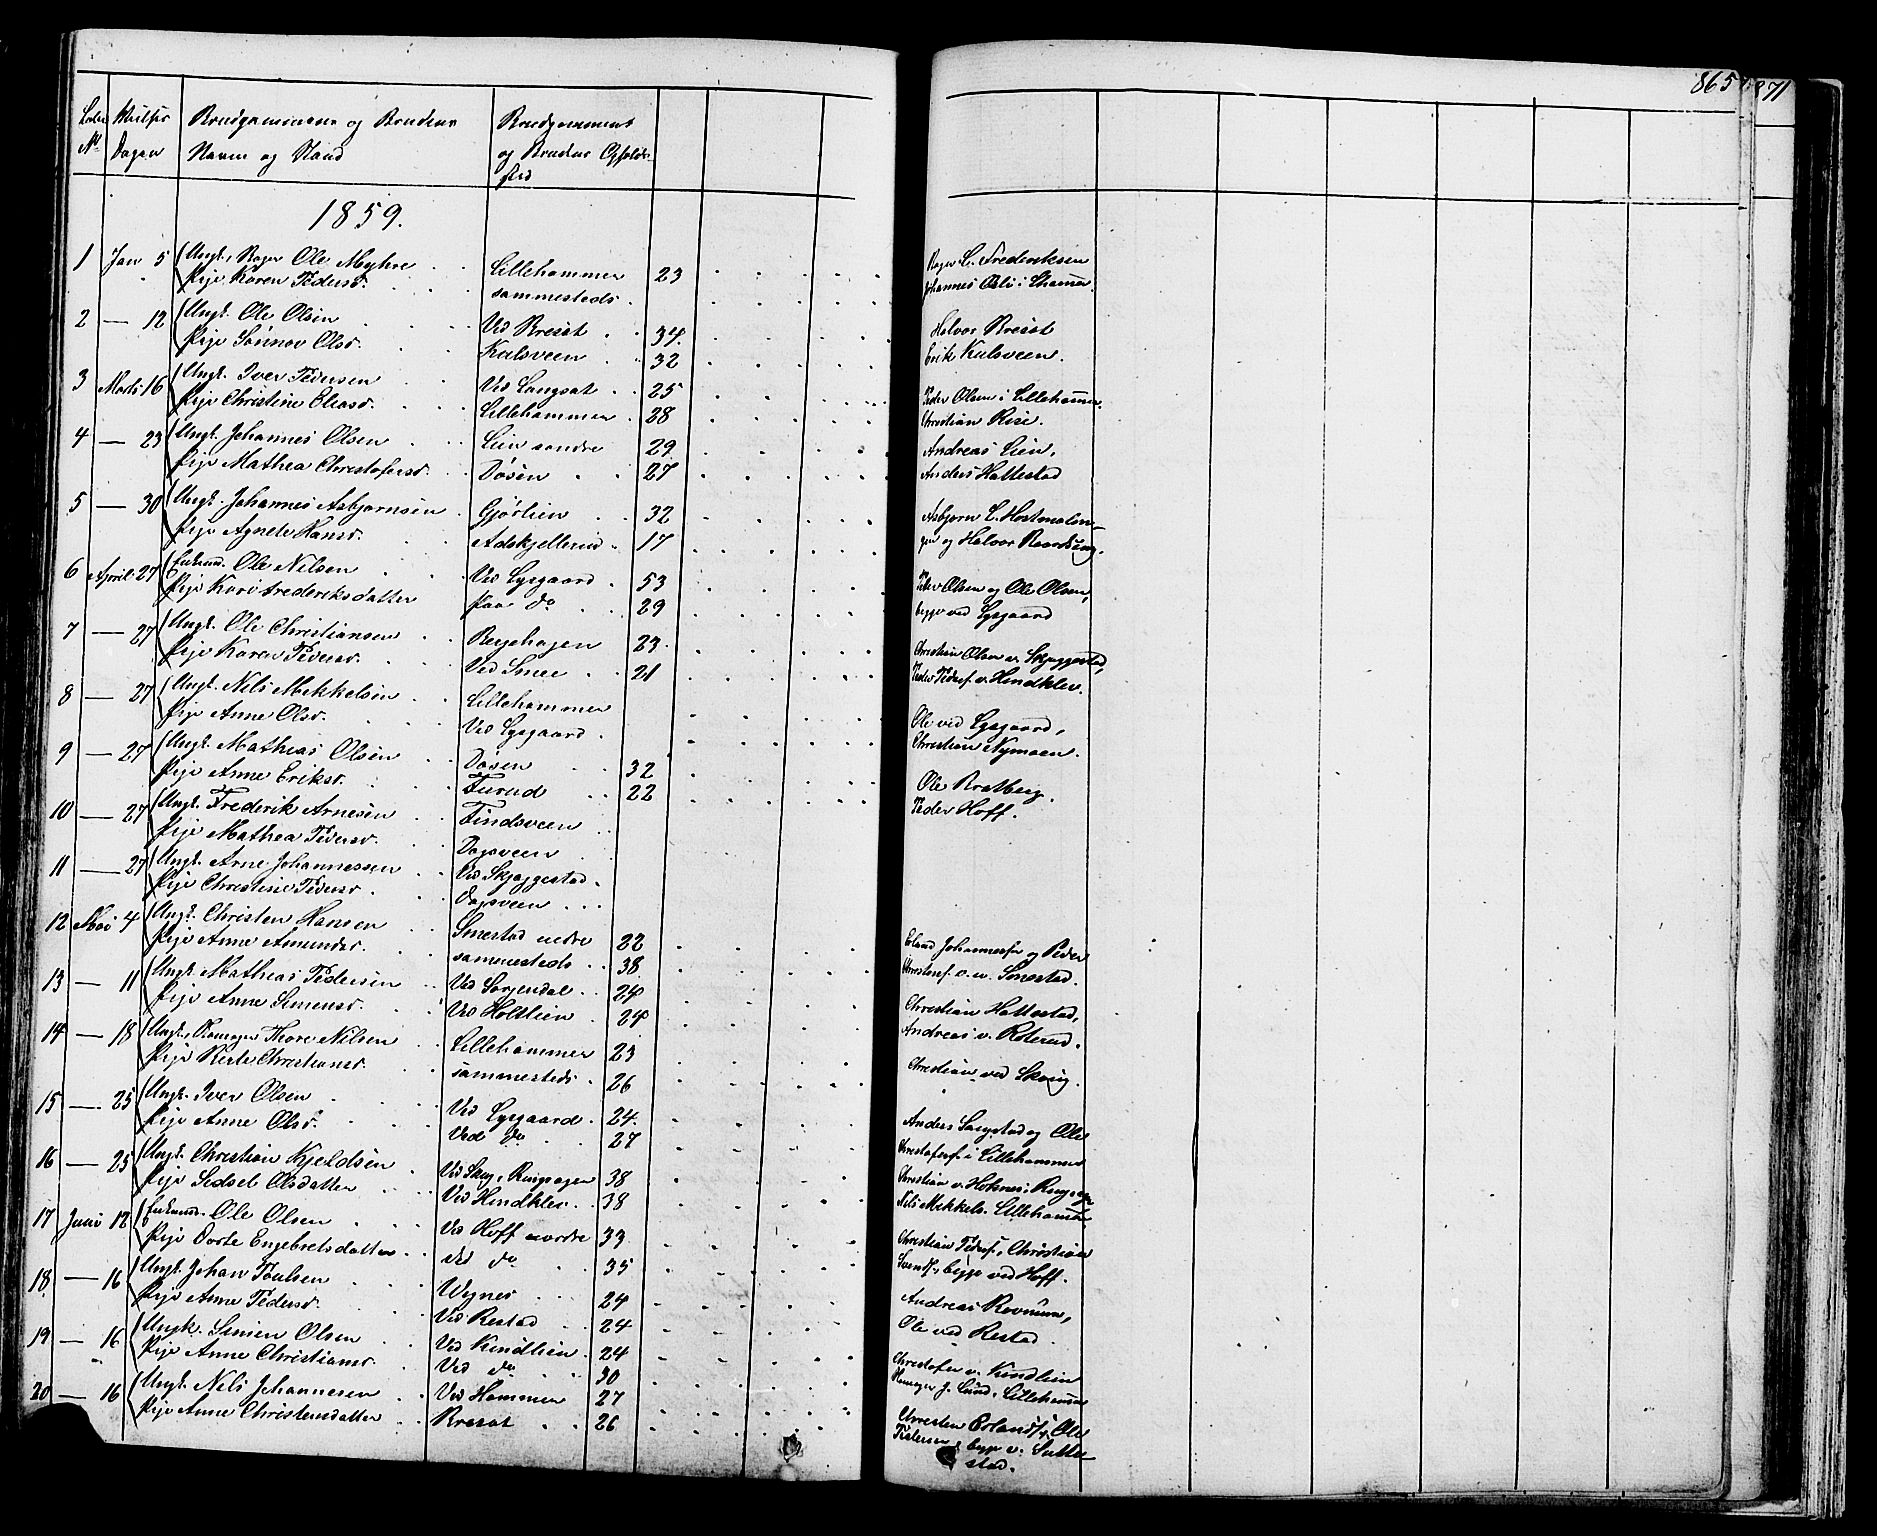 865 871
Løbe Vielses Brudgommens og Brudens Brudgommens
No Dagen Navne og Stand og Brudens Opholds-
sted
1859.
1 Jan 5 Ungk. Bager Ole Myhre Lillehammer 23 Bager L. Frederiksen
Pige Karen Pedersd. sammesteds Johannes Oslie i Lhamer.
2 — 12 Ungk. Ole Olsen Ved Bresæt 34 Halvor Bresæt
Pige Sønnov Olsd. Kulsveen 32 Erik Kulsveen.
3 Marts 16 Ungk. Iver Pedersen Ved Langsæt 25 Peder Olsen i Lillehamer.
Pige Christine Eliasd. Lillehammer 28 Christian Rise.
4 — 23 Ungk. Johannes Olsen Lien søndre 29 Andreas Lien,
Pige Mathea Christofersd. Døsen 27 Anders Hattestad
5 — 30 Ungk. Johannes Asbjørnsen Gjørlien 32 Asbjørn L. Hostmælin-
Pige Agnete Hansd. Adskjellerud 17 gen og Halvor Baardseng.
6 April 27 Enkem. Ole Nilsen Ved Lysgaard 53 Peder Olsen og Ole Olsen,
Pige Kari Frederiksdatter paa do 29 begge ved Lysgaard
7 — 27 Ungk. Ole Christiansen Bergehagen 23 Christian Olsen v. Skjæggestad,
Pige Karen Pedersd. Ved Smee 21 Peder Peders. v. Hindklev.
8 — 27 Ungk. Nils Mikkelsen Lillehammer Ole ved Lysgaard,
Pige Anne Olsd. Ved Lysgaard Christian Nymoen.
9 — 27 Ungk. Mathias Olsen Døsen 32 Ole Bratberg.
Pige Anne Eriksd. Furud 22 Peder Hoff.
10 — 27 Ungk. Frederik Arnesen Findsveen
Pige Mathea Pedersd. Dagsveen
11 — 27 Ungk. Arne Johannessen Ved Skjæggestad
Pige Christine Pedersd. Dagsveen
12 Mai 4 Ungk. Christen Hansen Smestad nedre 22 Erland Johannesen og Peder
Pige Anne Amundsd. sammesteds 38 Christens. v. n. Smestad.
13 — 11 Ungk. Mathias Pedersen Ved Sorgendal 24 Christian Hattestad,
Pige Anne Simensd. Ved Holtlien 24 Andreas v. Roterud.
14 — 18 Ungk. Thore Nilsen Lillehammer 23 Christian ved Skoug.
Pige Berte Christiansd. sammesteds 26
15 — 25 Ungk. Iver Olsen Ved Lysgaard 24 Anders Sangstad og Ole
Pige Anne Olsd. Ved do 27 Christofers. i Lillehammer
16 — 25 Ungk. Christian Kjeldsen Ved Skog, Ringsager 38 Christian v. Hoknes i Ringsager
Pige Sidsel Olsdatter Ved Hindklev 38 Nils Mikkels. Lillehamer
17 Juni 12 Enkem. Ole Olsen Ved Hoff nordre 33 Christian Peders., Christian
Pige Dorte Engebretsdatter ved do 35 Svends., begge ved Hoff.
18 — 16 Ungk. Johan Poulsen Vignes 24 Andreas Rovnum,
Pige Anne Pedersd. Ved Restad 24 Ole ved Restad
19 — 16 Ungk. Simen Olsen Ved Kindlien 24 Christofer v. Kindlien
Pige Anne Christiansd. Ved do 30 J. Lund, Lillehamer
20 — 16 Ungk. Nils Johannesen Ved Hammer 27 Christen Erlands., Ole
Pige Anne Christensdatter Bresæt 26 Pedersen, begge v. Sutte-
stad.